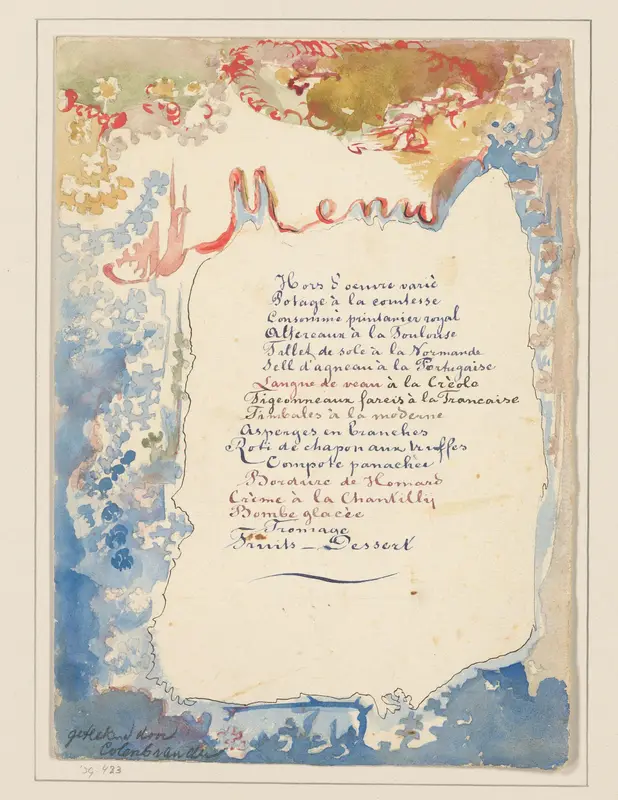 Menu
Hors d'oeuvre varié
Potage à la comtesse
Consommé printanier royal
Attereaux à la Toulouse
Fillet de sole à la Normande
Sell d'agneau à la Portugaise
Langue de veau à la Créole
Pigeonneaux farcis à la Francaise
Timbales à la moderne
Asperges en branches
Roti de chapon aux truffes
Compote panachée
Bordure de Homard
Crème à la Chantilly
Bombe glacée
Fromage
Fruits - Dessert
getekend door
Colenbrander